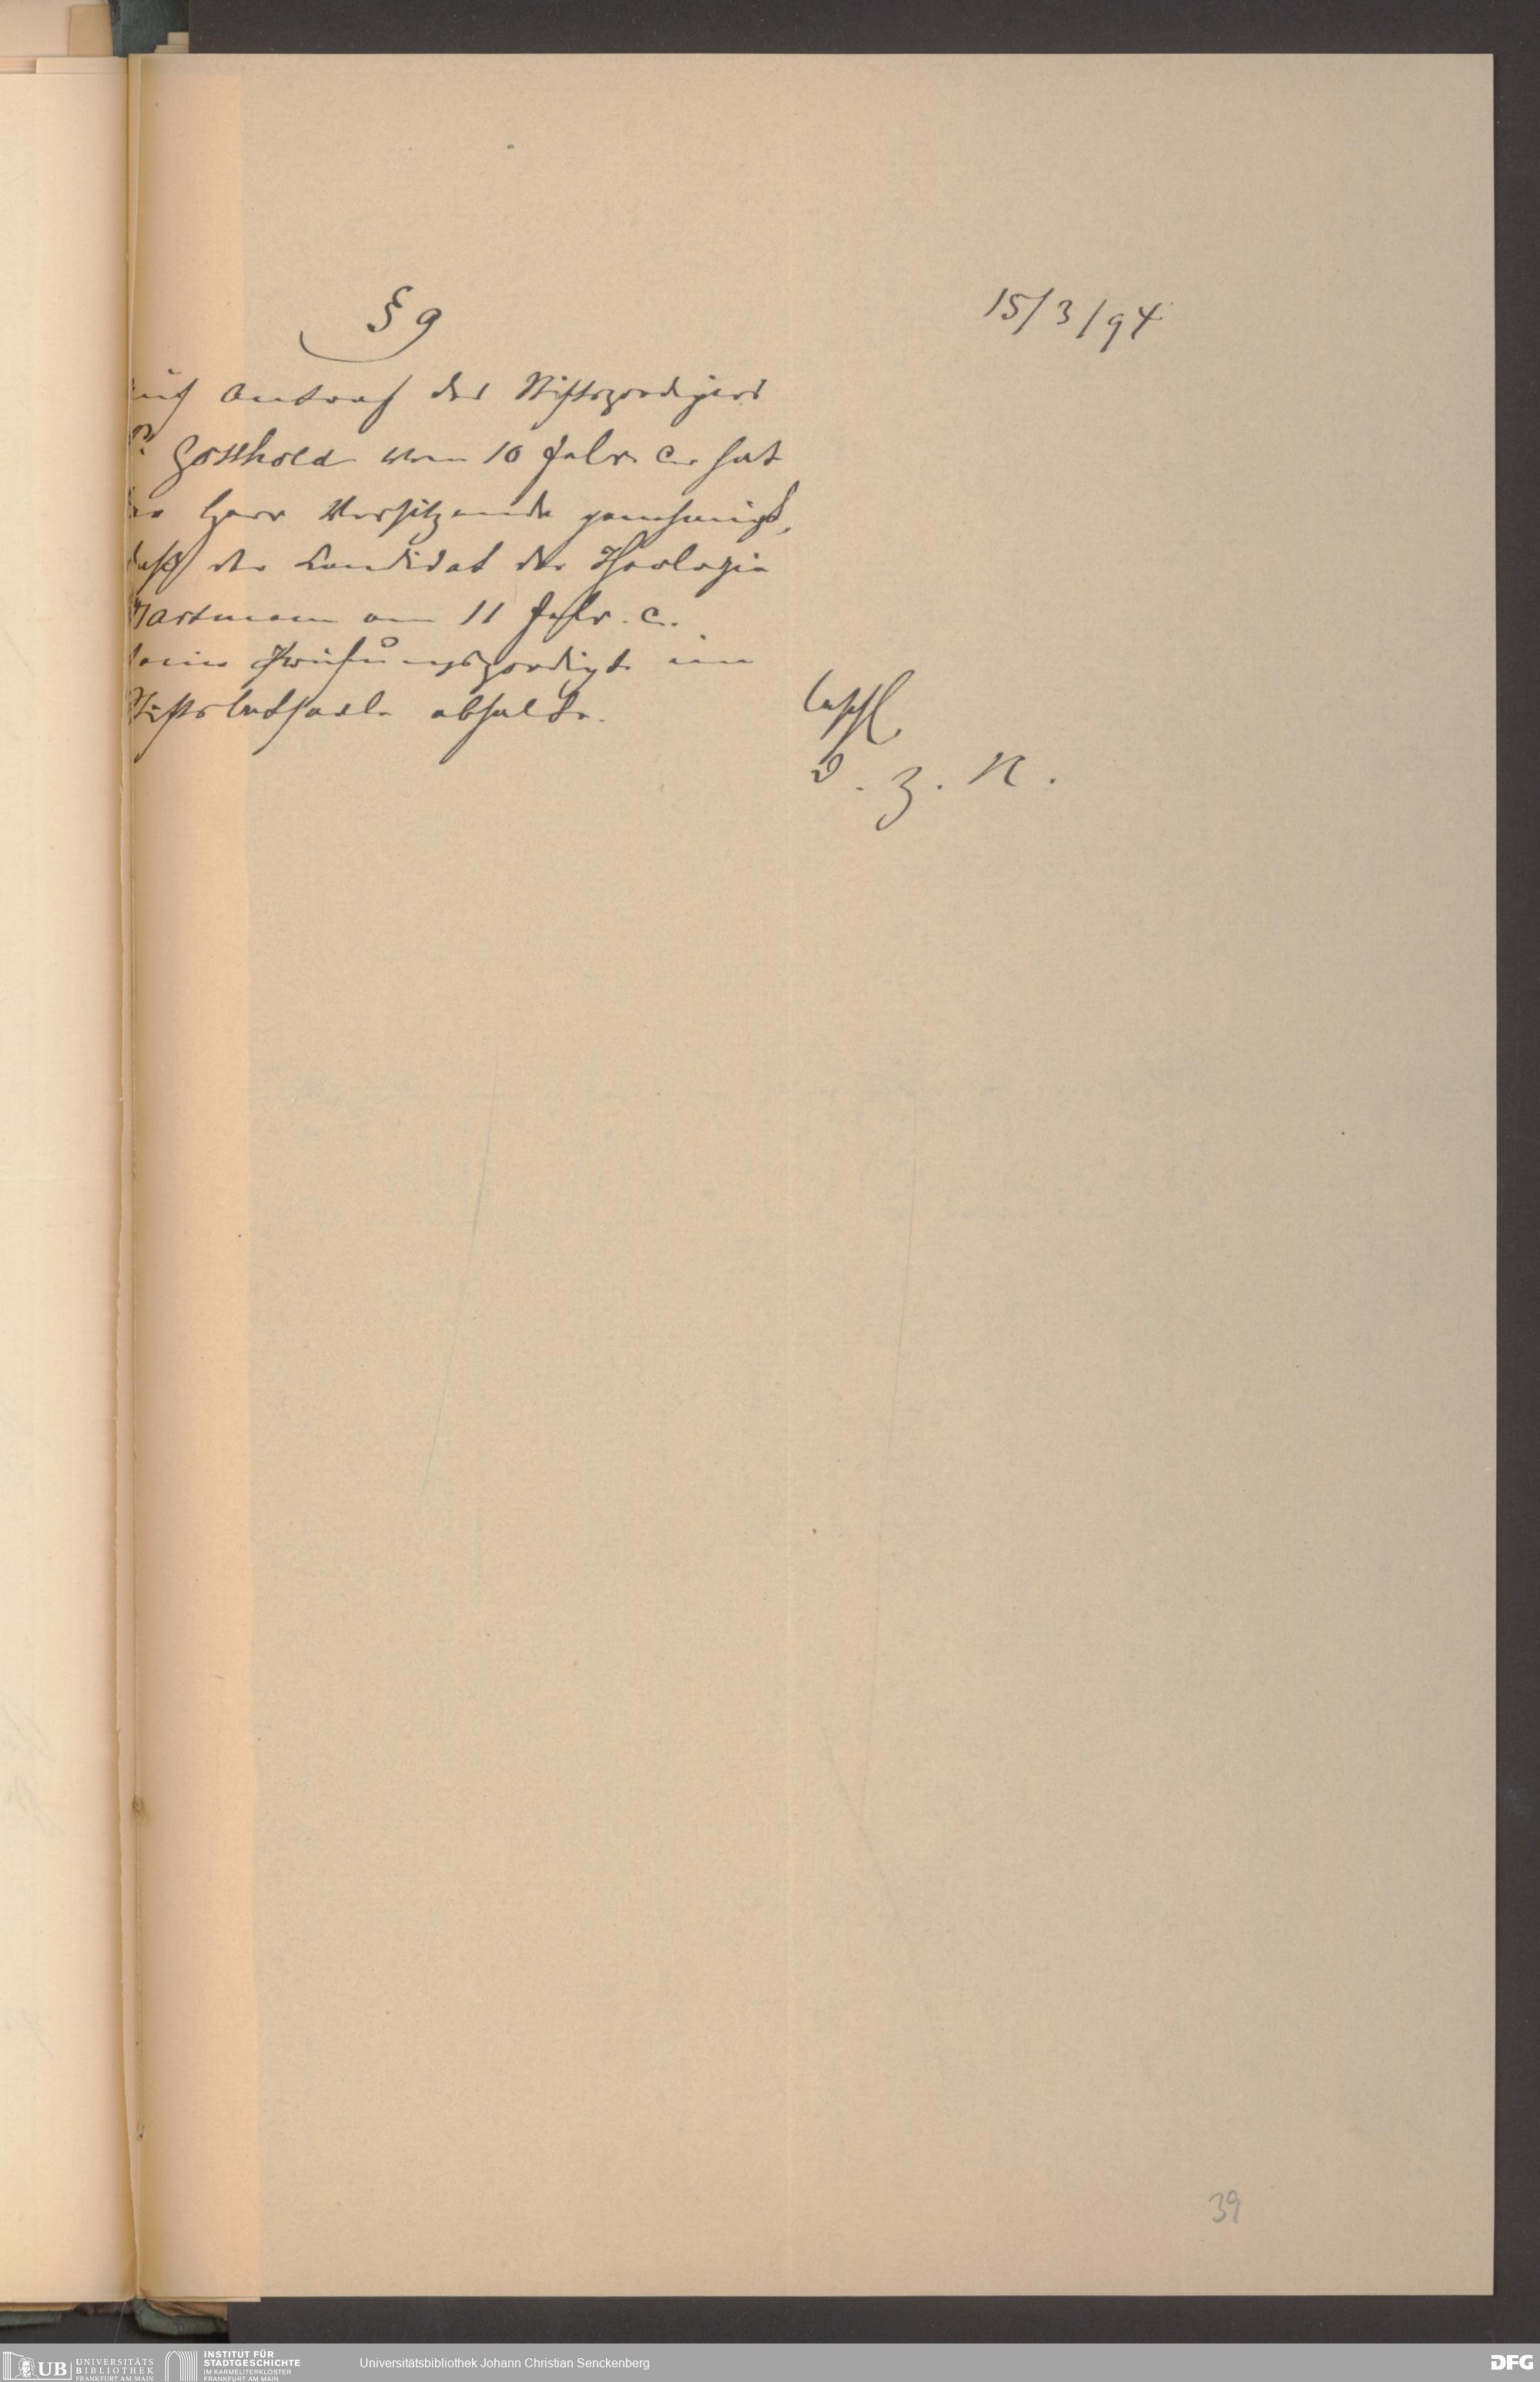 § 9
15/3/94
auf Antrag des Stiftspredigers
Gotthold vom 10 Febr. c. hat
der Herr Vorsitzende genehmigt,
daß der Candidat der Theologie
Hartmann am 11 Febr. c.
seine Prüfungspredigt im
Stiftsbetsaale abhalte.
beschl.
D. z. K.
39
UB UNIVERSITÄTS
BIBLIOTHEK
FRANKFURT AM MAIN
INSTITUT FÜR
STADTGESCHICHTE
IM KARMELITERKLOSTER
FRANKFURT AM MAIN
Universitätsbibliothek Johann Christian Senckenberg
DFG